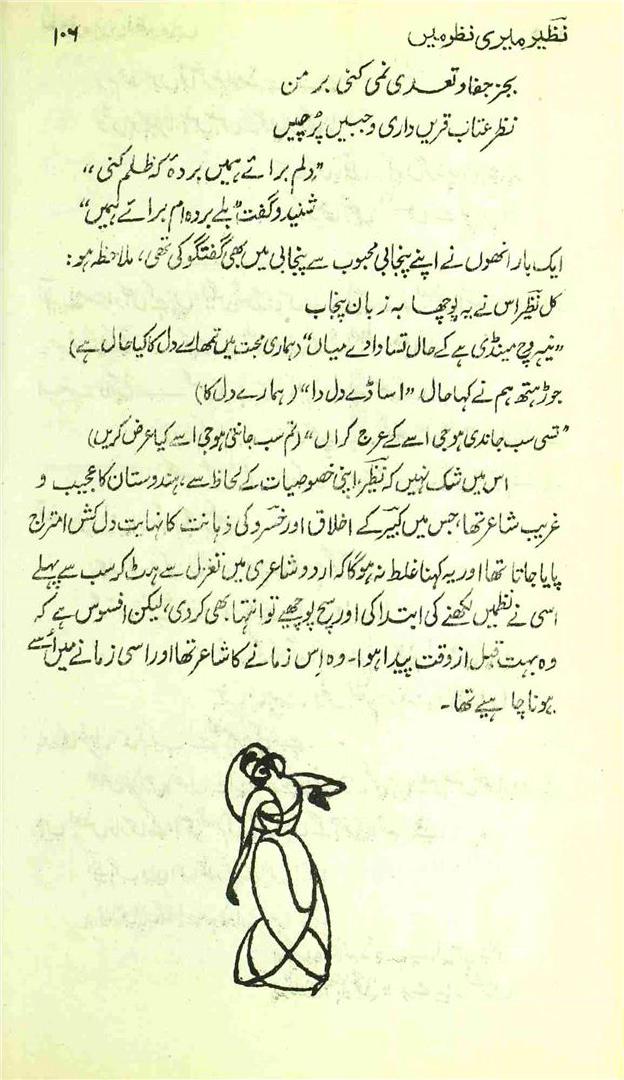 نظیر میری نظر میں
۱۰۶
بجز جفا و تعدی نمی کنی بر من
نظر عتاب قریں داری و جبیں پُر چیں
”دلم برائے ہمیں بردۂ کہ ظلم کنی“
شنید و گفت ”بلے بردہ ام برائے ہمیں“
ایک بار انھوں نے اپنے پنجابی محبوب سے پنجابی میں بھی گفتگو کی تھی، ملاحظہ ہو:
کل نظیر اس نے یہ پوچھا بہ زبان پنجاب
”نیہہ وچ مینڈی ہے کے حال تساداوے میاں“ (ہماری محبت میں تمھارے دل کا کیا حال ہے)
جوڑ ہتھ ہم نے کہا حال ”اساڈے دل دا“ (ہمارے دل کا)
”تسی سب جاندی ہو جی اسے کے عرج کراں“ (تم سب جانتی ہو جی اسے کیا عرض کریں)
اس میں شک نہیں کہ نظیر، اپنی خصوصیات کے لحاظ سے، ہندوستان کا عجیب و
غریب شاعر تھا، جس میں کبیر کے اخلاق اور خسرو کی ذہانت کا نہایت دل کش امتزاج
پایا جاتا تھا اور یہ کہنا غلط نہ ہوگا کہ اردو شاعری میں تغزل سے ہٹ کر سب سے پہلے
اسی نے نظمیں لکھنے کی ابتدا کی اور سچ پوچھیے تو انتہا بھی کر دی، لیکن افسوس ہے کہ
وہ بہت قبل از وقت پیدا ہوا۔ وہ اِس زمانے کا شاعر تھا اور اسی زمانے میں اُسے
ہونا چاہیے تھا۔